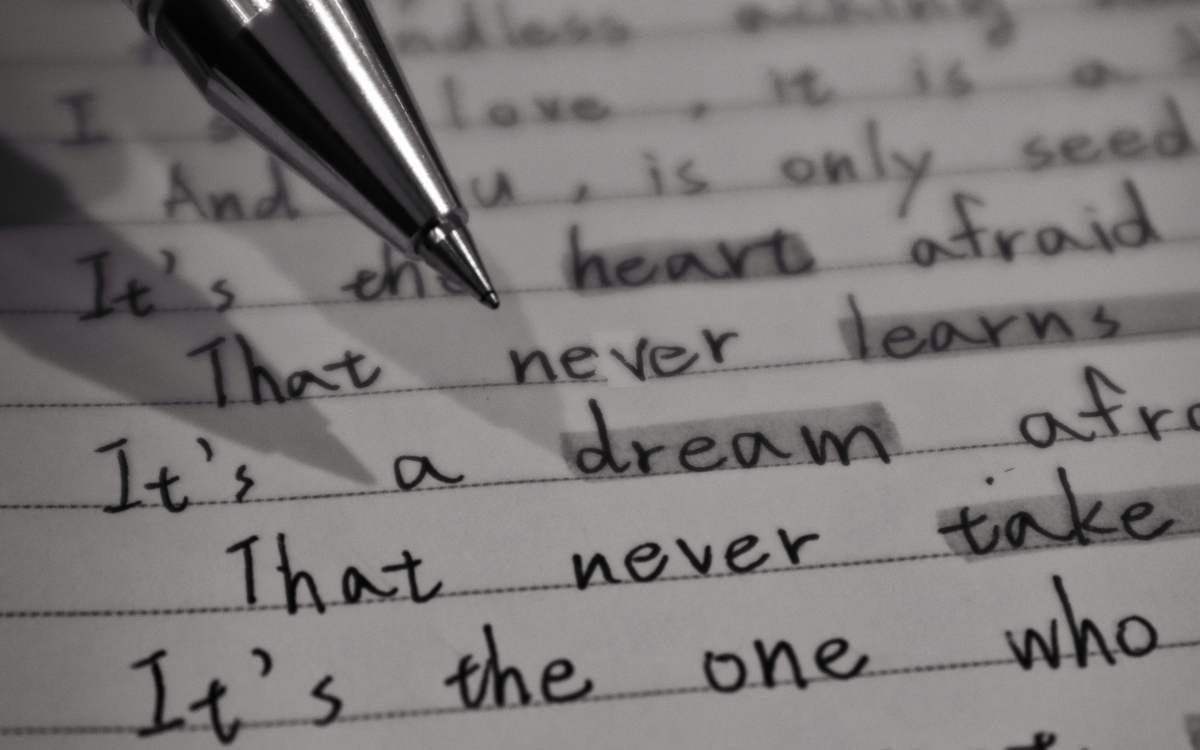 aching
I love , it is a
And u , is only seed
It's the heart afraid
That never learns
It's a dream afra
That never take
It's the one who